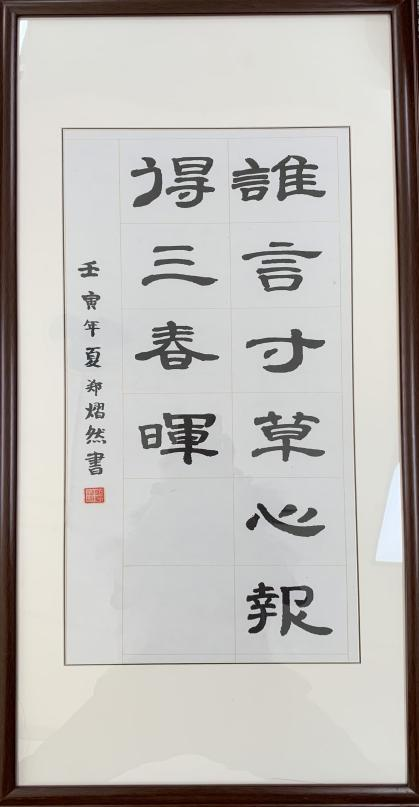 誰言寸草心報
得三春暉
壬寅年夏郑熠然書